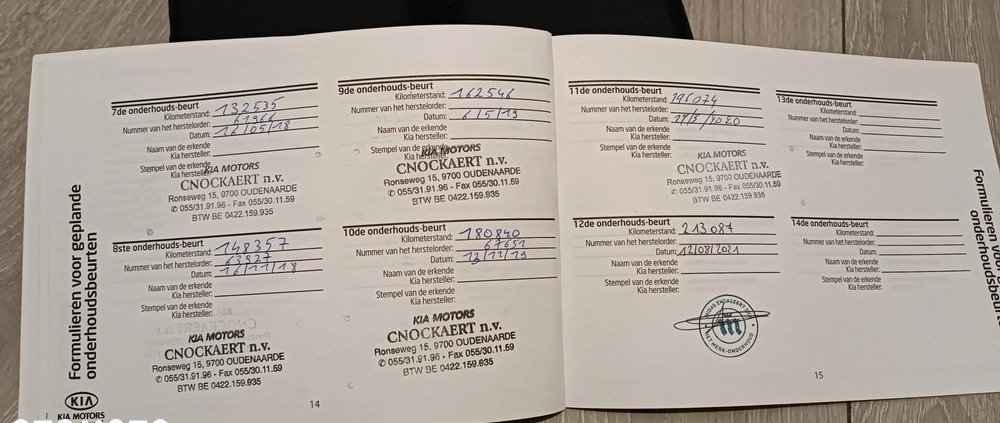 Formulieren voor geplande
onderhoudsbeurten
KIA
KIA MOTORS
7de onderhouds-beurt
Kilometerstand: 132535
Nummer van het herstelorder: 61966
Datum: 16/05/18
Naam van de erkende
Kia hersteller:
Stempel van de erkende
Kia hersteller:
KIA MOTORS
CNOCKAERT n.v.
Ronseweg 15, 9700 OUDENAARDE
✆ 055/31.91.96 - Fax 055/30.11.59
BTW BE 0422.159.935
8ste onderhouds-beurt
Kilometerstand: 148357
Nummer van het herstelorder: 63827
Datum: 16/11/18
Naam van de erkende
Kia hersteller:
Stempel van de erkende
Kia hersteller:
KIA MOTORS
CNOCKAERT n.v.
Ronseweg 15, 9700 OUDENAARDE
✆ 055/31.91.96 - Fax 055/30.11.59
BTW BE 0422.159.935
9de onderhouds-beurt
Kilometerstand: 162546
Nummer van het herstelorder:
Datum: 6/5/19
Naam van de erkende
Kia hersteller:
Stempel van de erkende
Kia hersteller:
KIA MOTORS
CNOCKAERT n.v.
Ronseweg 15, 9700 OUDENAARDE
✆ 055/31.91.96 - Fax 055/30.11.59
BTW BE 0422.159.935
10de onderhouds-beurt
Kilometerstand: 180840
Nummer van het herstelorder: 67651
Datum: 12/12/19
Naam van de erkende
Kia hersteller:
Stempel van de erkende
Kia hersteller:
KIA MOTORS
CNOCKAERT n.v.
Ronseweg 15, 9700 OUDENAARDE
✆ 055/31.91.96 - Fax 055/30.11.59
BTW BE 0422.159.935
14
11de onderhouds-beurt
Kilometerstand: 196074
Nummer van het herstelorder:
Datum:
Naam van de erkende
Kia hersteller:
Stempel van de erkende
Kia hersteller:
KIA MOTORS
CNOCKAERT n.v.
Ronseweg 15, 9700 OUDENAARDE
✆ 055/31.91.96 - Fax 055/30.11.59
BTW BE 0422.159.935
12de onderhouds-beurt
Kilometerstand: 213087
Nummer van het herstelorder:
Datum: 12/08/2021
Naam van de erkende
Kia hersteller:
Stempel van de erkende
Kia hersteller:
HET MERK-ONDERHOUD
13de onderhouds-beurt
Kilometerstand:
Nummer van het herstelorder:
Datum:
Naam van de erkende
Kia hersteller:
Stempel van de erkende
Kia hersteller:
14de onderhouds-beurt
Kilometerstand:
Nummer van het herstelorder:
Datum:
Naam van de erkende
Kia hersteller:
Stempel van de erkende
Kia hersteller:
15
Formulieren
onderhoudsbeurt